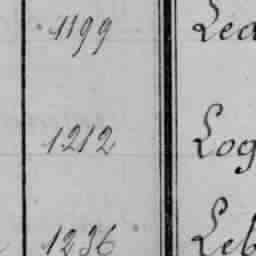 1199 Lea
1212 Log
1236 Leb